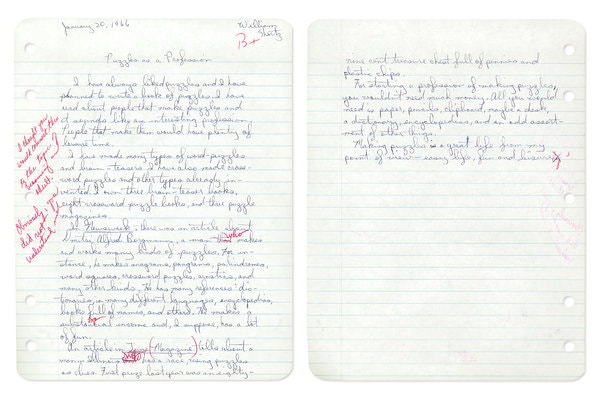 January 20, 1966
William Shortz
B+
Puzzles as a Profession
I have always liked puzzles and I have
planned to write a book of puzzles. I have
read about people that make puzzles and
it sounds like an interesting profession.
People that make them would have plenty of
leisure time.
I have made many types of word-puzzles
and brain-teasers. I have also made cross-
word puzzles and other types already in-
vented. I own three brain-teaser books,
eight crossword puzzle books, and three puzzle
magazines.
In Newsweek, there was an article about
Dmitri Alfred Borgmann, a man that makes
who
and works many kinds of puzzles. For in-
stance, he makes anagrams, programs, palindromes,
word squares, crossword puzzles, acrostics, and
many other kinds. He has many references: dic-
tionaries, in many different languages, encyclopedias,
books full of names, and others. He makes a
substantial income and, I suppose, has a lot
of fun.
An article in (Magazine) tells about a
many had a race using puzzles
as clues. First prize last year was an eighty-
I thought you
would
the topic
Obviously you
did not
understand
nine cent treasure chest full of pennies and
plastic chips.
For starting a profession of making puzzles,
you wouldn't need much money. All you would
need is paper, pencils, clipboard, maybe a desk,
a dictionary, encyclopedias, and an odd assort-
ment of other things.
Making puzzles is a great life from my
point of view - easy life, fun and leisure